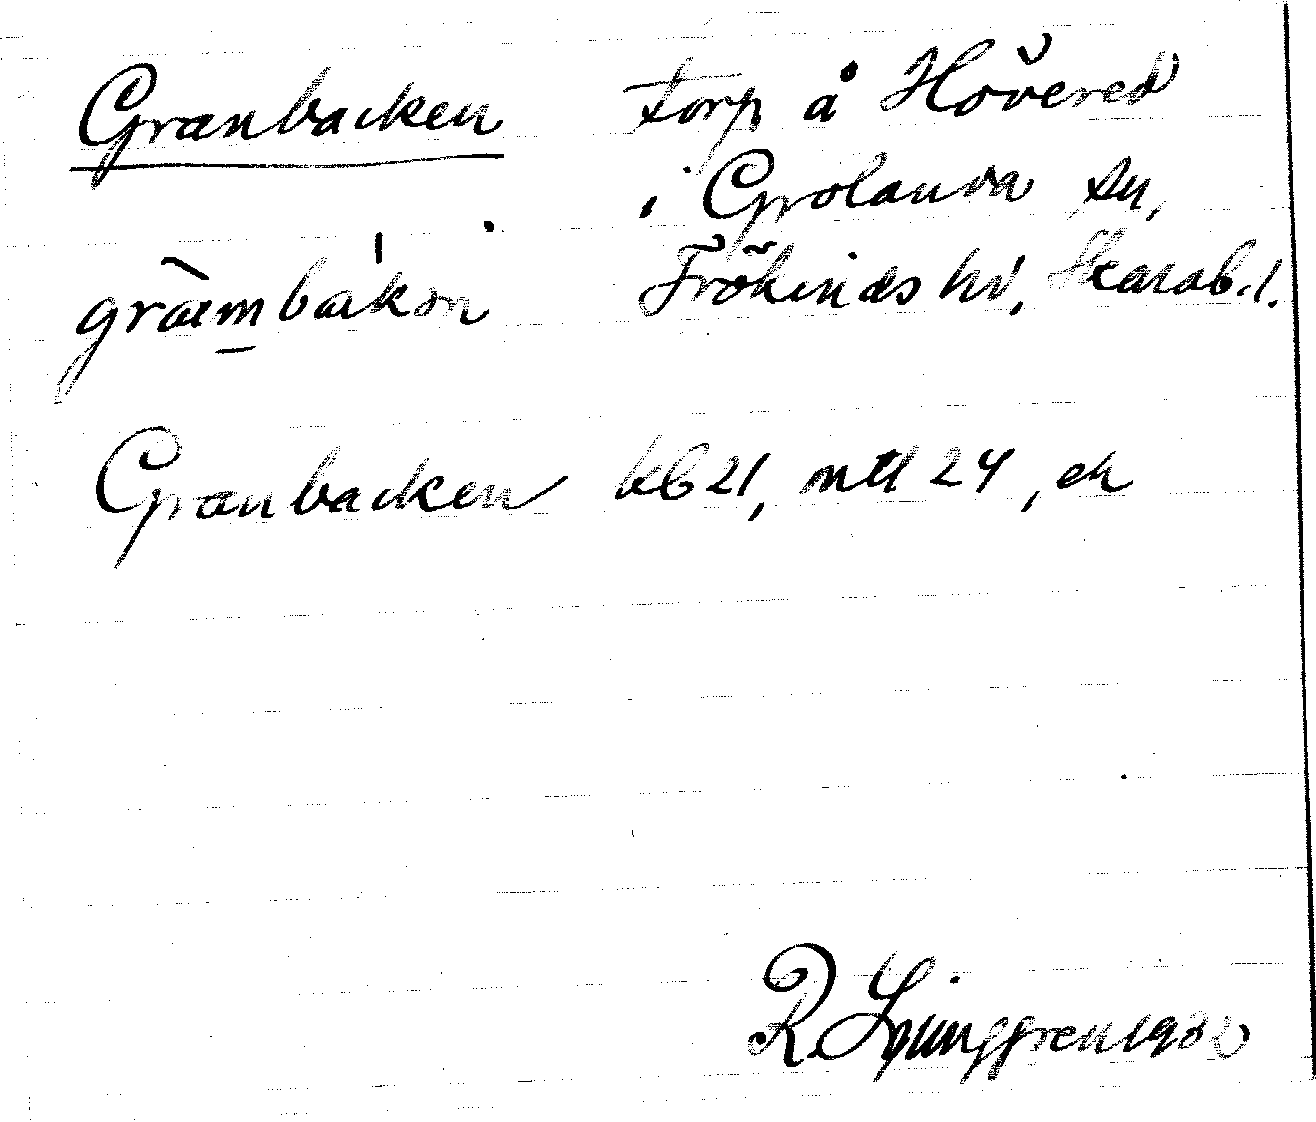 Granbacken torp å Hövered
i Grolanda sn,
gràmbákɑn Frökinds hd, Skarab.l.
Granbacken kb 21, mtl 24, ek
R. Ljunggren 1932